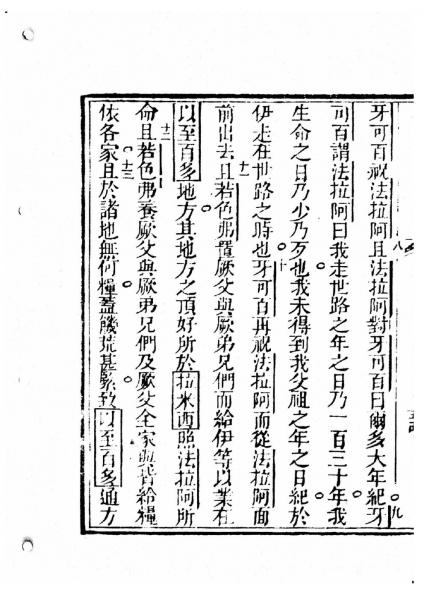 牙可百祝法拉阿且法拉阿對牙可百曰爾多大年紀牙
可百謂法拉阿曰我走世路之年之日乃一百三十年我
生命之日乃少乃歹也我未得到我父祖之年之日紀於
伊走在世路之時也牙可百再祝法拉阿而從法拉阿面
前出去且若色弗置厥父與厥弟兄們而給伊等以業在
以至百多地方其地方之頂好所於拉米西照法拉阿所
命且若色弗養厥父與厥弟兄們及厥父全家與皆給糧
依各家且於諸地無何糧蓋饑荒甚緊致以至百多通方
八
九
十
十一
十二
十三